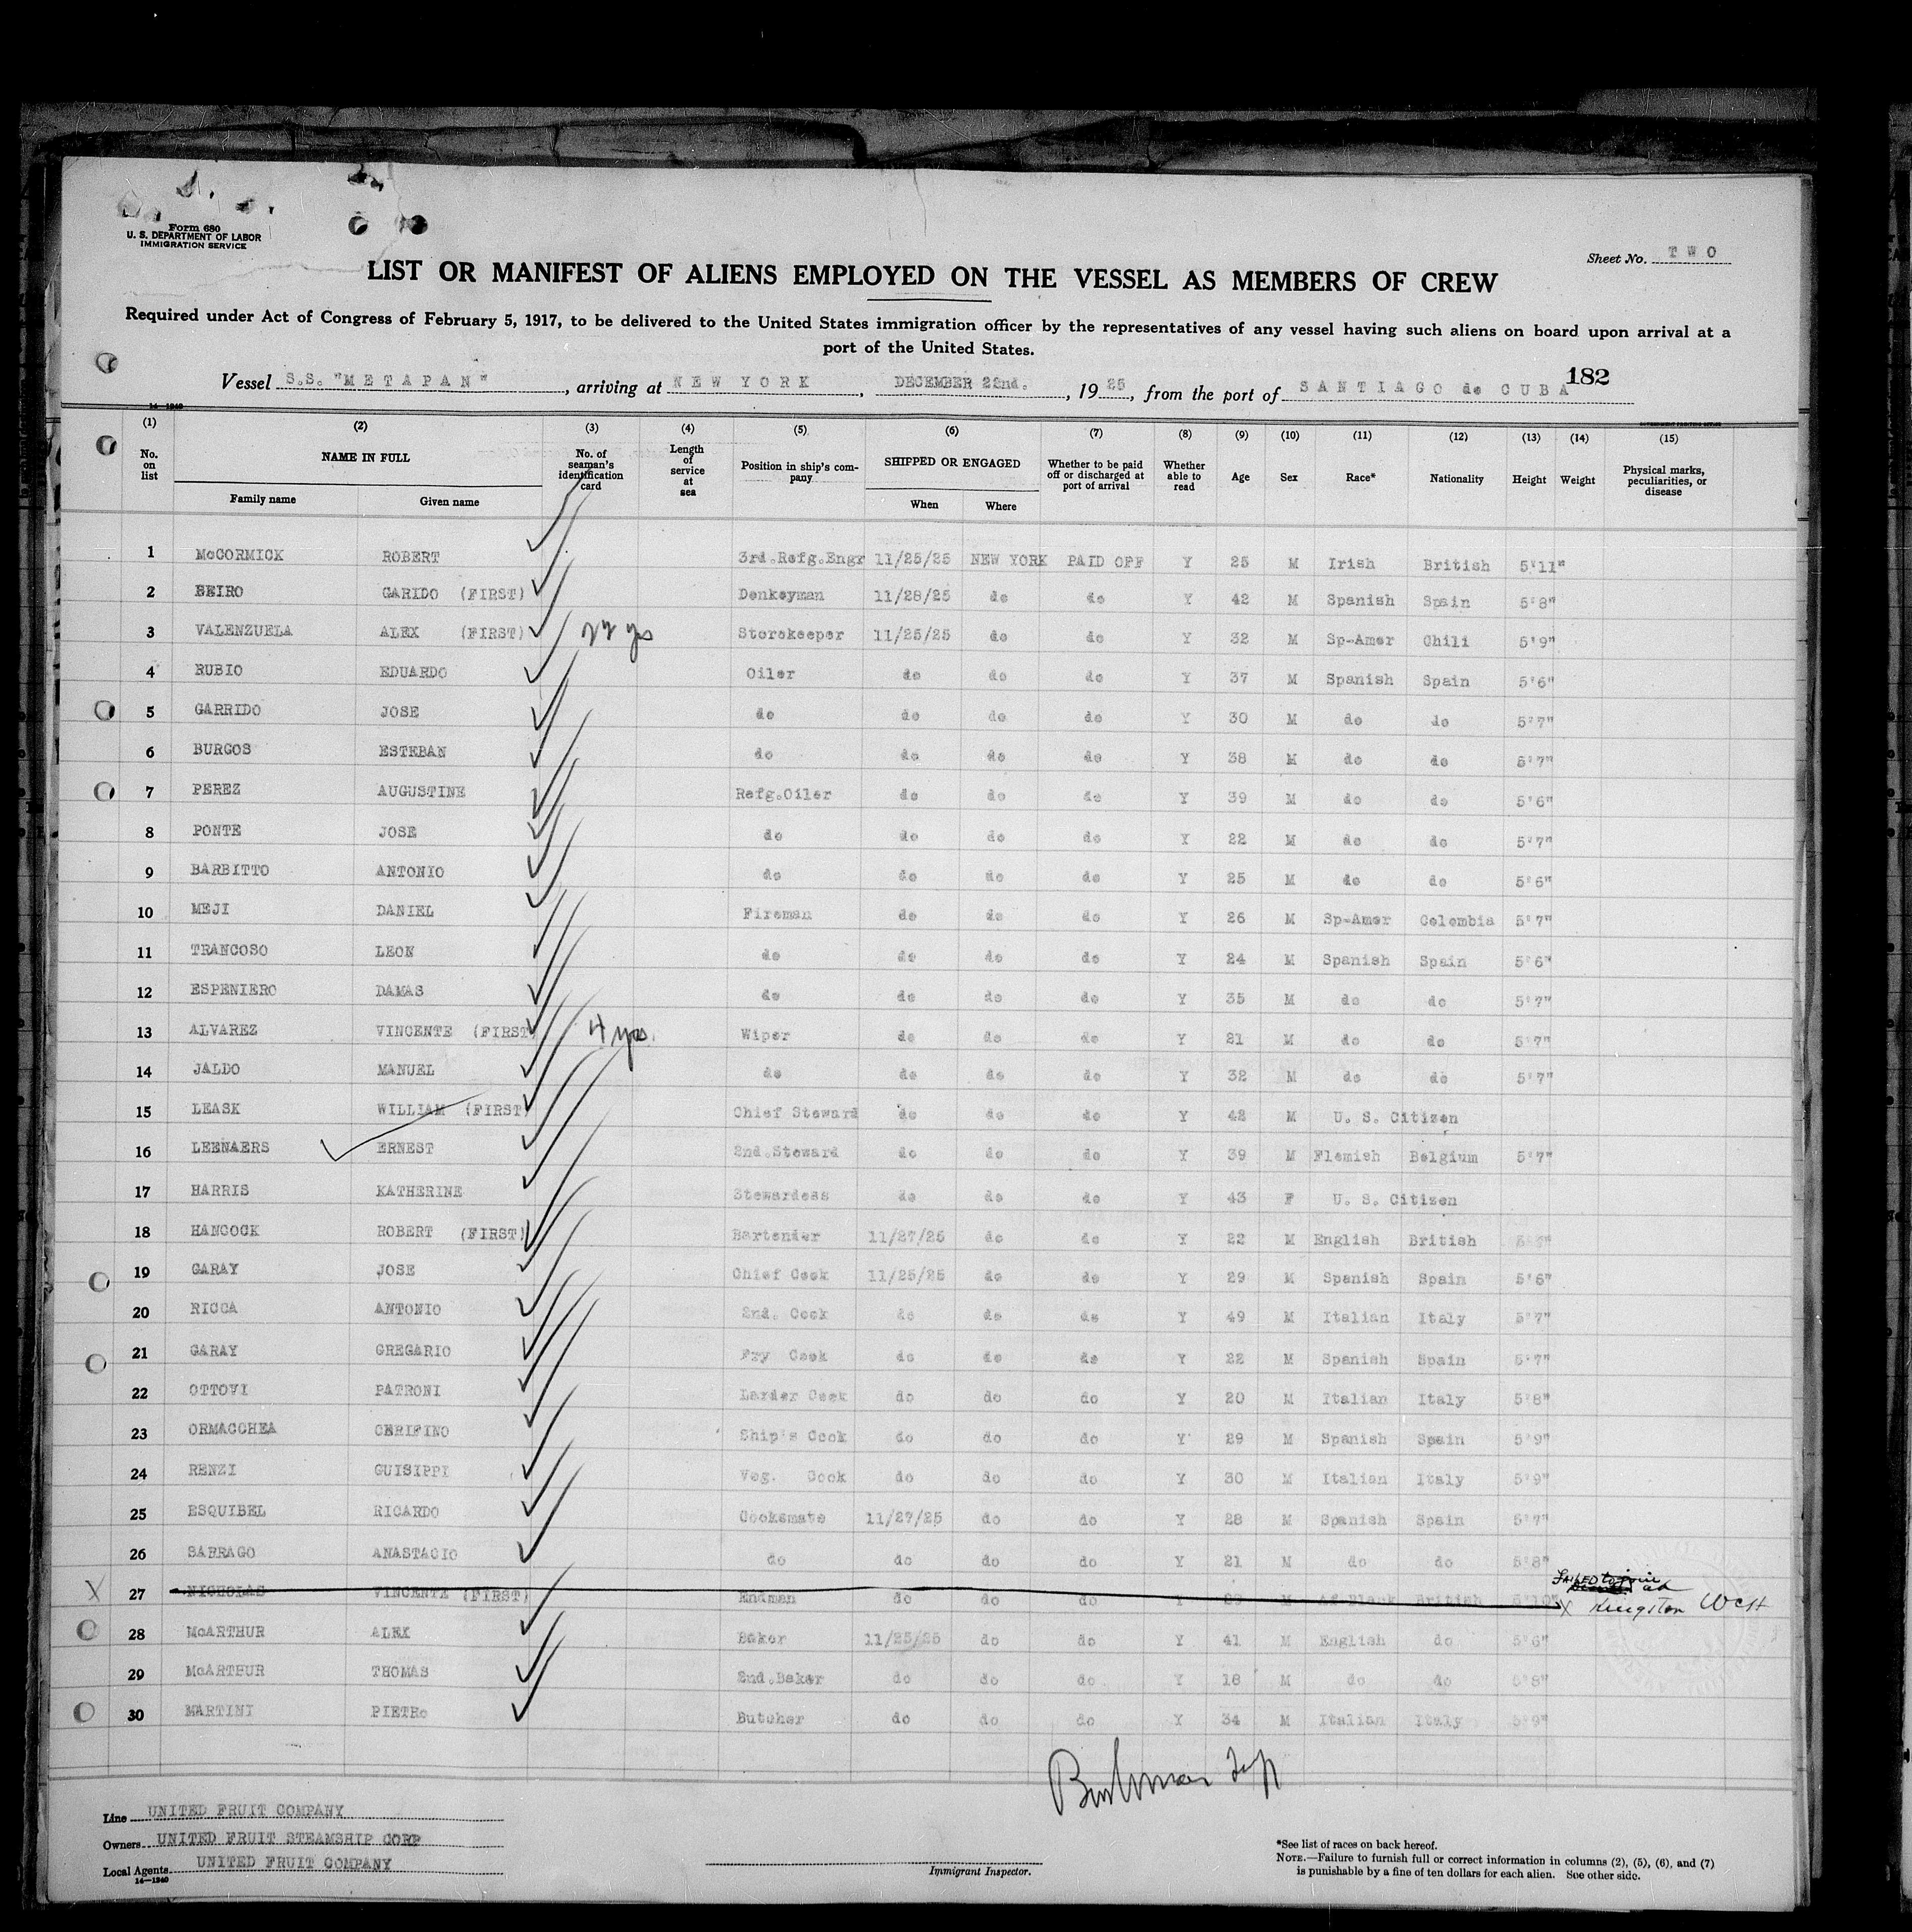 Form 680
U. S. DEPARTMENT OF LABOR
IMMIGRATION SERVICE
Sheet No. TWO
LIST OR MANIFEST OF ALIENS EMPLOYED ON THE VESSEL AS MEMBERS OF CREW
Required under Act of Congress of February 5, 1917, to be delivered to the United States immigration officer by the representatives of any vessel having such aliens on board upon arrival at a
port of the United States.
182
Vessel S.S. "METAPAN", arriving at NEW YORK, DECEMBER 22nd., 1925, from the port of SANTIAGO de CUBA
14—1240
(1) (2) (3) (4) (5) (6) (7) (8) (9) (10) (11) (12) (13) (14) (15)
No. on list NAME IN FULL Family name Given name No. of seaman's identification card Length of service at sea Position in ship's company SHIPPED OR ENGAGED When Where Whether to be paid off or discharged at port of arrival Whether able to read Age Sex Race* Nationality Height Weight Physical marks, peculiarities, or disease
1 McCORMICK ROBERT 3rd.Refg.Engr 11/25/25 NEW YORK PAID OFF Y 25 M Irish British 5'11"
2 BEIRO GARIDO (FIRST) Donkeyman 11/28/25 do do Y 42 M Spanish Spain 5'8"
3 VALENZUELA ALEX (FIRST) yrs Storekeeper 11/25/25 do do Y 32 M Sp-Amer Chili 5'9"
4 RUBIO EDUARDO Oiler do do do Y 37 M Spanish Spain 5'6"
5 GARRIDO JOSE do do do do Y 30 M do do 5'7"
6 BURGOS ESTEBAN do do do do Y 38 M do do 5'7"
7 PEREZ AUGUSTINE Refg.Oiler do do do Y 39 M do do 5'6"
8 PONTE JOSE do do do do Y 22 M do do 5'7"
9 BARBITTO ANTONIO do do do do Y 25 M do do 5'6"
10 MEJI DANIEL Fireman do do do Y 26 M Sp-Amer Colombia 5'7"
11 TRANCOSO LEON do do do do Y 24 M Spanish Spain 5'6"
12 ESPENIERO DAMAS do do do do Y 35 M do do 5'7"
13 ALVAREZ VINCENTE (FIRST 4 yrs. Wiper do do do Y 21 M do do 5'7"
14 JALDO MANUEL do do do do Y 32 M do do 5'7"
15 LEASK WILLIAM (FIRST) Chief Steward do do do Y 42 M U. S. Citizen
16 LEENAERS ERNEST 2nd.Steward do do do Y 39 M Flemish Belgium 5'7"
17 HARRIS KATHERINE Stewardess do do do Y 43 F U. S. Citizen
18 HANCOCK ROBERT (FIRST) Bartender 11/27/25 do do Y 22 M English British
19 GARAY JOSE Chief Cook 11/25/25 do do Y 29 M Spanish Spain 5'6"
20 RICCA ANTONIO 2nd. Cook do do do Y 49 M Italian Italy 5'7"
21 GARAY GREGARIO Fry Cook do do do Y 22 M Spanish Spain 5'7"
22 OTTOVI PATRONI Larder Cook do do do Y 20 M Italian Italy 5'8"
23 ORMACCHEA CERIFINO Ship's Cook do do do Y 29 M Spanish Spain 5'9"
24 RENZI GUISIPPI Veg. Cook do do do Y 30 M Italian Italy 5'9"
25 ESQUIBEL RICARDO Cooksmate 11/27/25 do do Y 28 M Spanish Spain 5'7"
26 BARRAGO ANASTACIO do do do do Y 21 M do do 5'8"
X 27 NICHOLAS VINCENTE (FIRST) Endman do do do Y 29 M Af Black British 5'10" FAILED to join at
X Kingston
28 McARTHUR ALEX Baker 11/25/25 do do Y 41 M English do 5'6"
29 McARTHUR THOMAS 2nd.Baker do do do Y 18 M do do 5'8"
30 MARTINI PIETRo Butcher do do do Y 34 M Italian Italy 5'9"
Line UNITED FRUIT COMPANY
Owners UNITED FRUIT STEAMSHIP CORP
Local Agents UNITED FRUIT COMPANY
14—1240
Immigrant Inspector.
*See list of races on back hereof.
NOTE.—Failure to furnish full or correct information in columns (2), (5), (6), and (7)
is punishable by a fine of ten dollars for each alien. See other side.